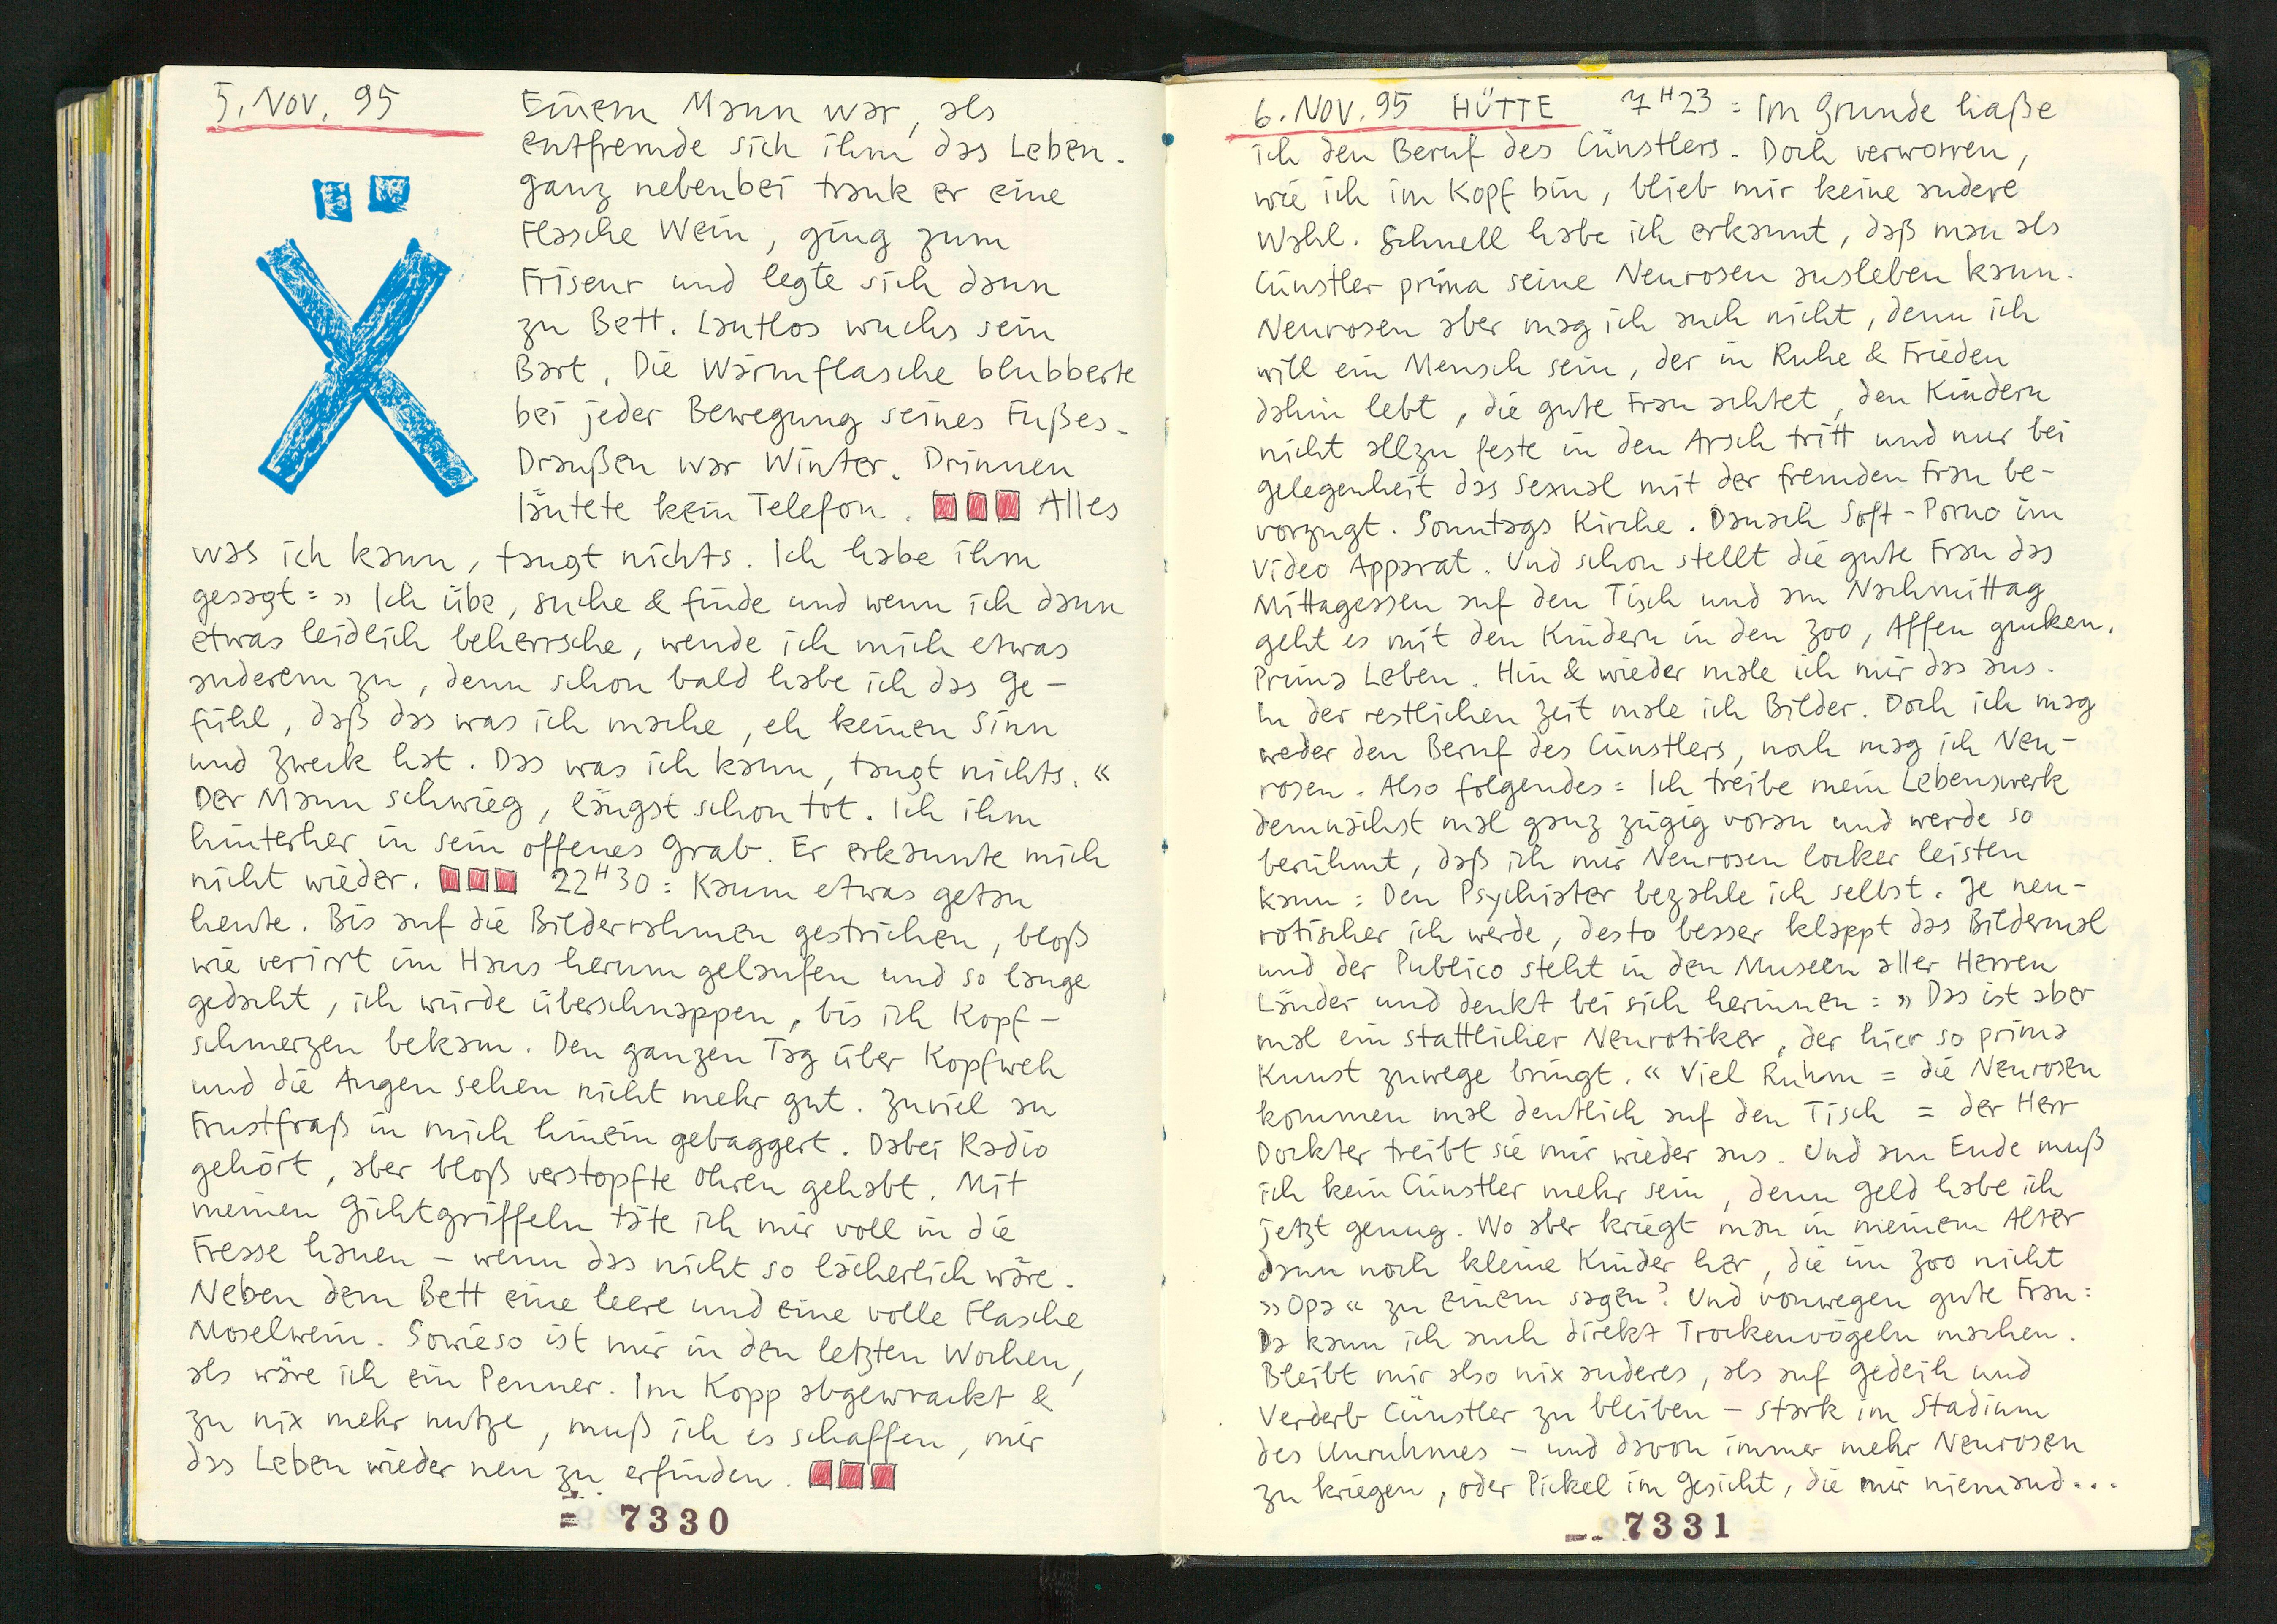 5. NOV. 95
Einem Mann war, als
entfremde sich ihm das Leben.
Ganz nebenbei trank er eine
Flasche Wein, ging zum
Friseur und legte sich dann
zu Bett. Lautlos wuchs sein
Bart. Die Wärmflasche blubberte
bei jeder Bewegung seines Fußes.
Draußen war Winter. Drinnen
läutete kein Telefon. Alles
was ich kann, taugt nichts. Ich habe ihm
gesagt = » Ich übe, suche & finde und wenn ich dann
etwas leidlich beherrsche, wende ich mich etwas
anderem zu, denn schon bald habe ich das Ge-
fühl, daß das was ich mache, eh keinen Sinn
und Zweck hat. Das was ich kann, taugt nichts. «
Der Mann schwieg, längst schon tot. Ich ihm
hinterher in sein offenes Grab. Er erkannte mich
nicht wieder. 22H30: Kaum etwas getan
heute. Bis auf die Bilderrahmen gestrichen, bloß
wie verirrt im Haus herum gelaufen und so lange
gedacht, ich würde überschnappen, bis ich Kopf-
schmerzen bekam. Den ganzen Tag über Kopfweh
und die Augen sehen nicht mehr gut. Zuviel an
Frustfraß in mich hinein gebaggert. Dabei Radio
gehört, aber bloß verstopfte Ohren gehabt. Mit
meinen Gichtgriffeln täte ich mir voll in die
Fresse hauen – wenn das nicht so lächerlich wäre.
Neben dem Bett eine leere und eine volle Flasche
Moselwein. Sowieso ist mir in den letzten Wochen,
als wäre ich ein Penner. Im Kopp abgewrackt &
zu nix mehr nutze, muß ich es schaffen, mir
das Leben wieder neu zu erfinden.
= 7330
6. NOV. 95 HÜTTE 7H23 = Im Grunde haße
ich den Beruf des Cünstlers. Doch verworren,
wie ich im Kopf bin, blieb mir keine andere
Wahl. Schnell habe ich erkannt, daß man als
Cünstler prima seine Neurosen ausleben kann.
Neurosen aber mag ich auch nicht, denn ich
will ein Mensch sein, der in Ruhe & Frieden
dahin lebt, die gute Frau achtet, den Kindern
nicht allzu feste in den Arsch tritt und nur bei
gelegenheit das Sexual mit der fremden Frau be-
vorzugt. Sonntags Kirche. Danach Soft-Porno im
Video Apparat. Und schon stellt die gute Frau das
Mittagessen auf den Tisch und am Nachmittag
geht es mit den Kindern in den Zoo, Affen gucken.
Prima Leben. Hin & wieder male ich mir das aus.
In der restlichen Zeit male ich Bilder. Doch ich mag
weder den Beruf des Cünstlers, noch mag ich Neu-
rosen. Also folgendes = Ich treibe mein Lebenswerk
demnächst mal ganz zügig voran und werde so
berühmt, daß ich mir Neurosen locker leisten
kann = Den Psychiater bezahle ich selbst. Je neu-
rotischer ich werde, desto besser klappt das Bildermal
und der Publico steht in den Museen aller Herren
Länder und denkt bei sich herinnen = » Das ist aber
mal ein stattlicher Neurotiker, der hier so prima
Kunst zuwege bringt. « Viel Ruhm = die Neurosen
kommen mal deutlich auf den Tisch = der Herr
Dockter treibt sie mir wieder aus. Und am Ende muß
ich kein Cünstler mehr sein, denn Geld habe ich
jetzt genug. Wo aber kriegt man in meinem Alter
dann noch kleine Kinder her, die im Zoo nicht
» Opa « zu einem sagen? Und vonwegen gute Frau:
Da kann ich auch direkt Trockenvögeln machen.
Bleibt mir also nix anderes, als auf Gedeih und
Verderb Cünstler zu bleiben – stark im Stadium
des Unruhmes – und davon immer mehr Neurosen
zu kriegen, oder Pickel im Gesicht, die mir niemand...
7331